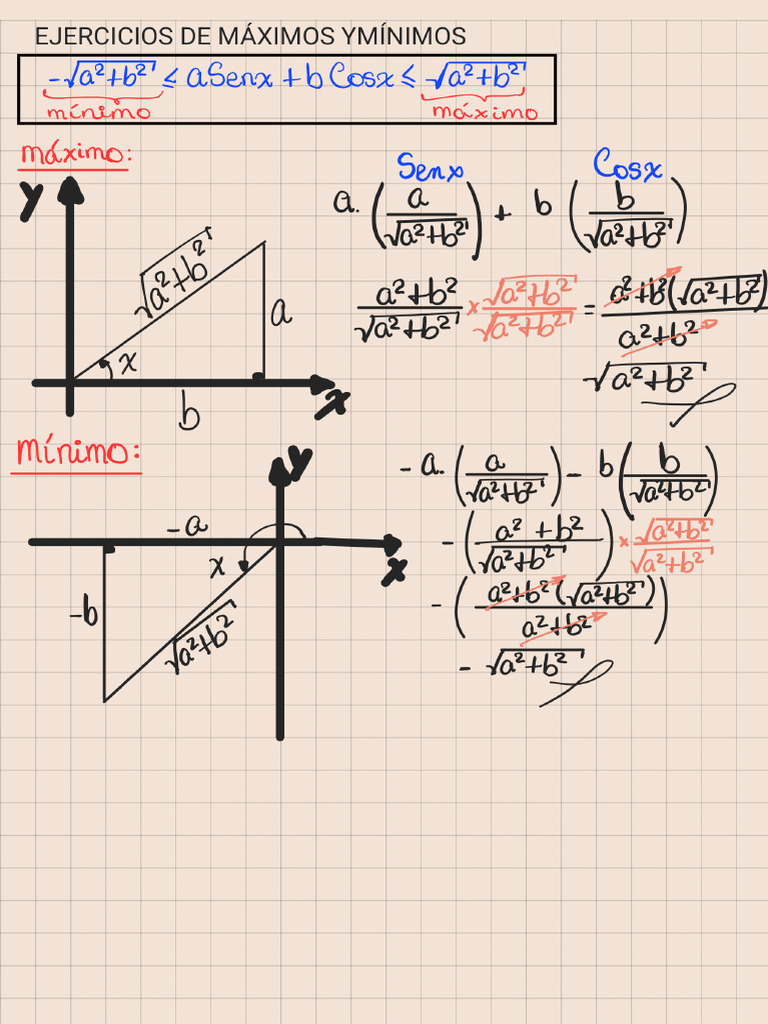 EJERCICIOS DE MÁXIMOS YMÍNIMOS
-√(a²+b²) ≤ aSenx + bCosx ≤ √(a²+b²)
mínimo máximo
máximo:
y
√(a²+b²)
a
x
b
x
Senx Cosx
a. (a/√(a²+b²)) + b (b/√(a²+b²))
(a²+b²)/√(a²+b²) × √(a²+b²)/√(a²+b²) = a²+b²(√(a²+b²))/(a²+b²)
√(a²+b²)
Mínimo:
y
-a
x
x
-b
√(a²+b²)
- a. (a/√(a²+b²)) - b (b/√(a²+b²))
- ((a²+b²)/√(a²+b²)) × √(a²+b²)/√(a²+b²)
- (a²+b²(√(a²+b²))/(a²+b²))
- √(a²+b²)